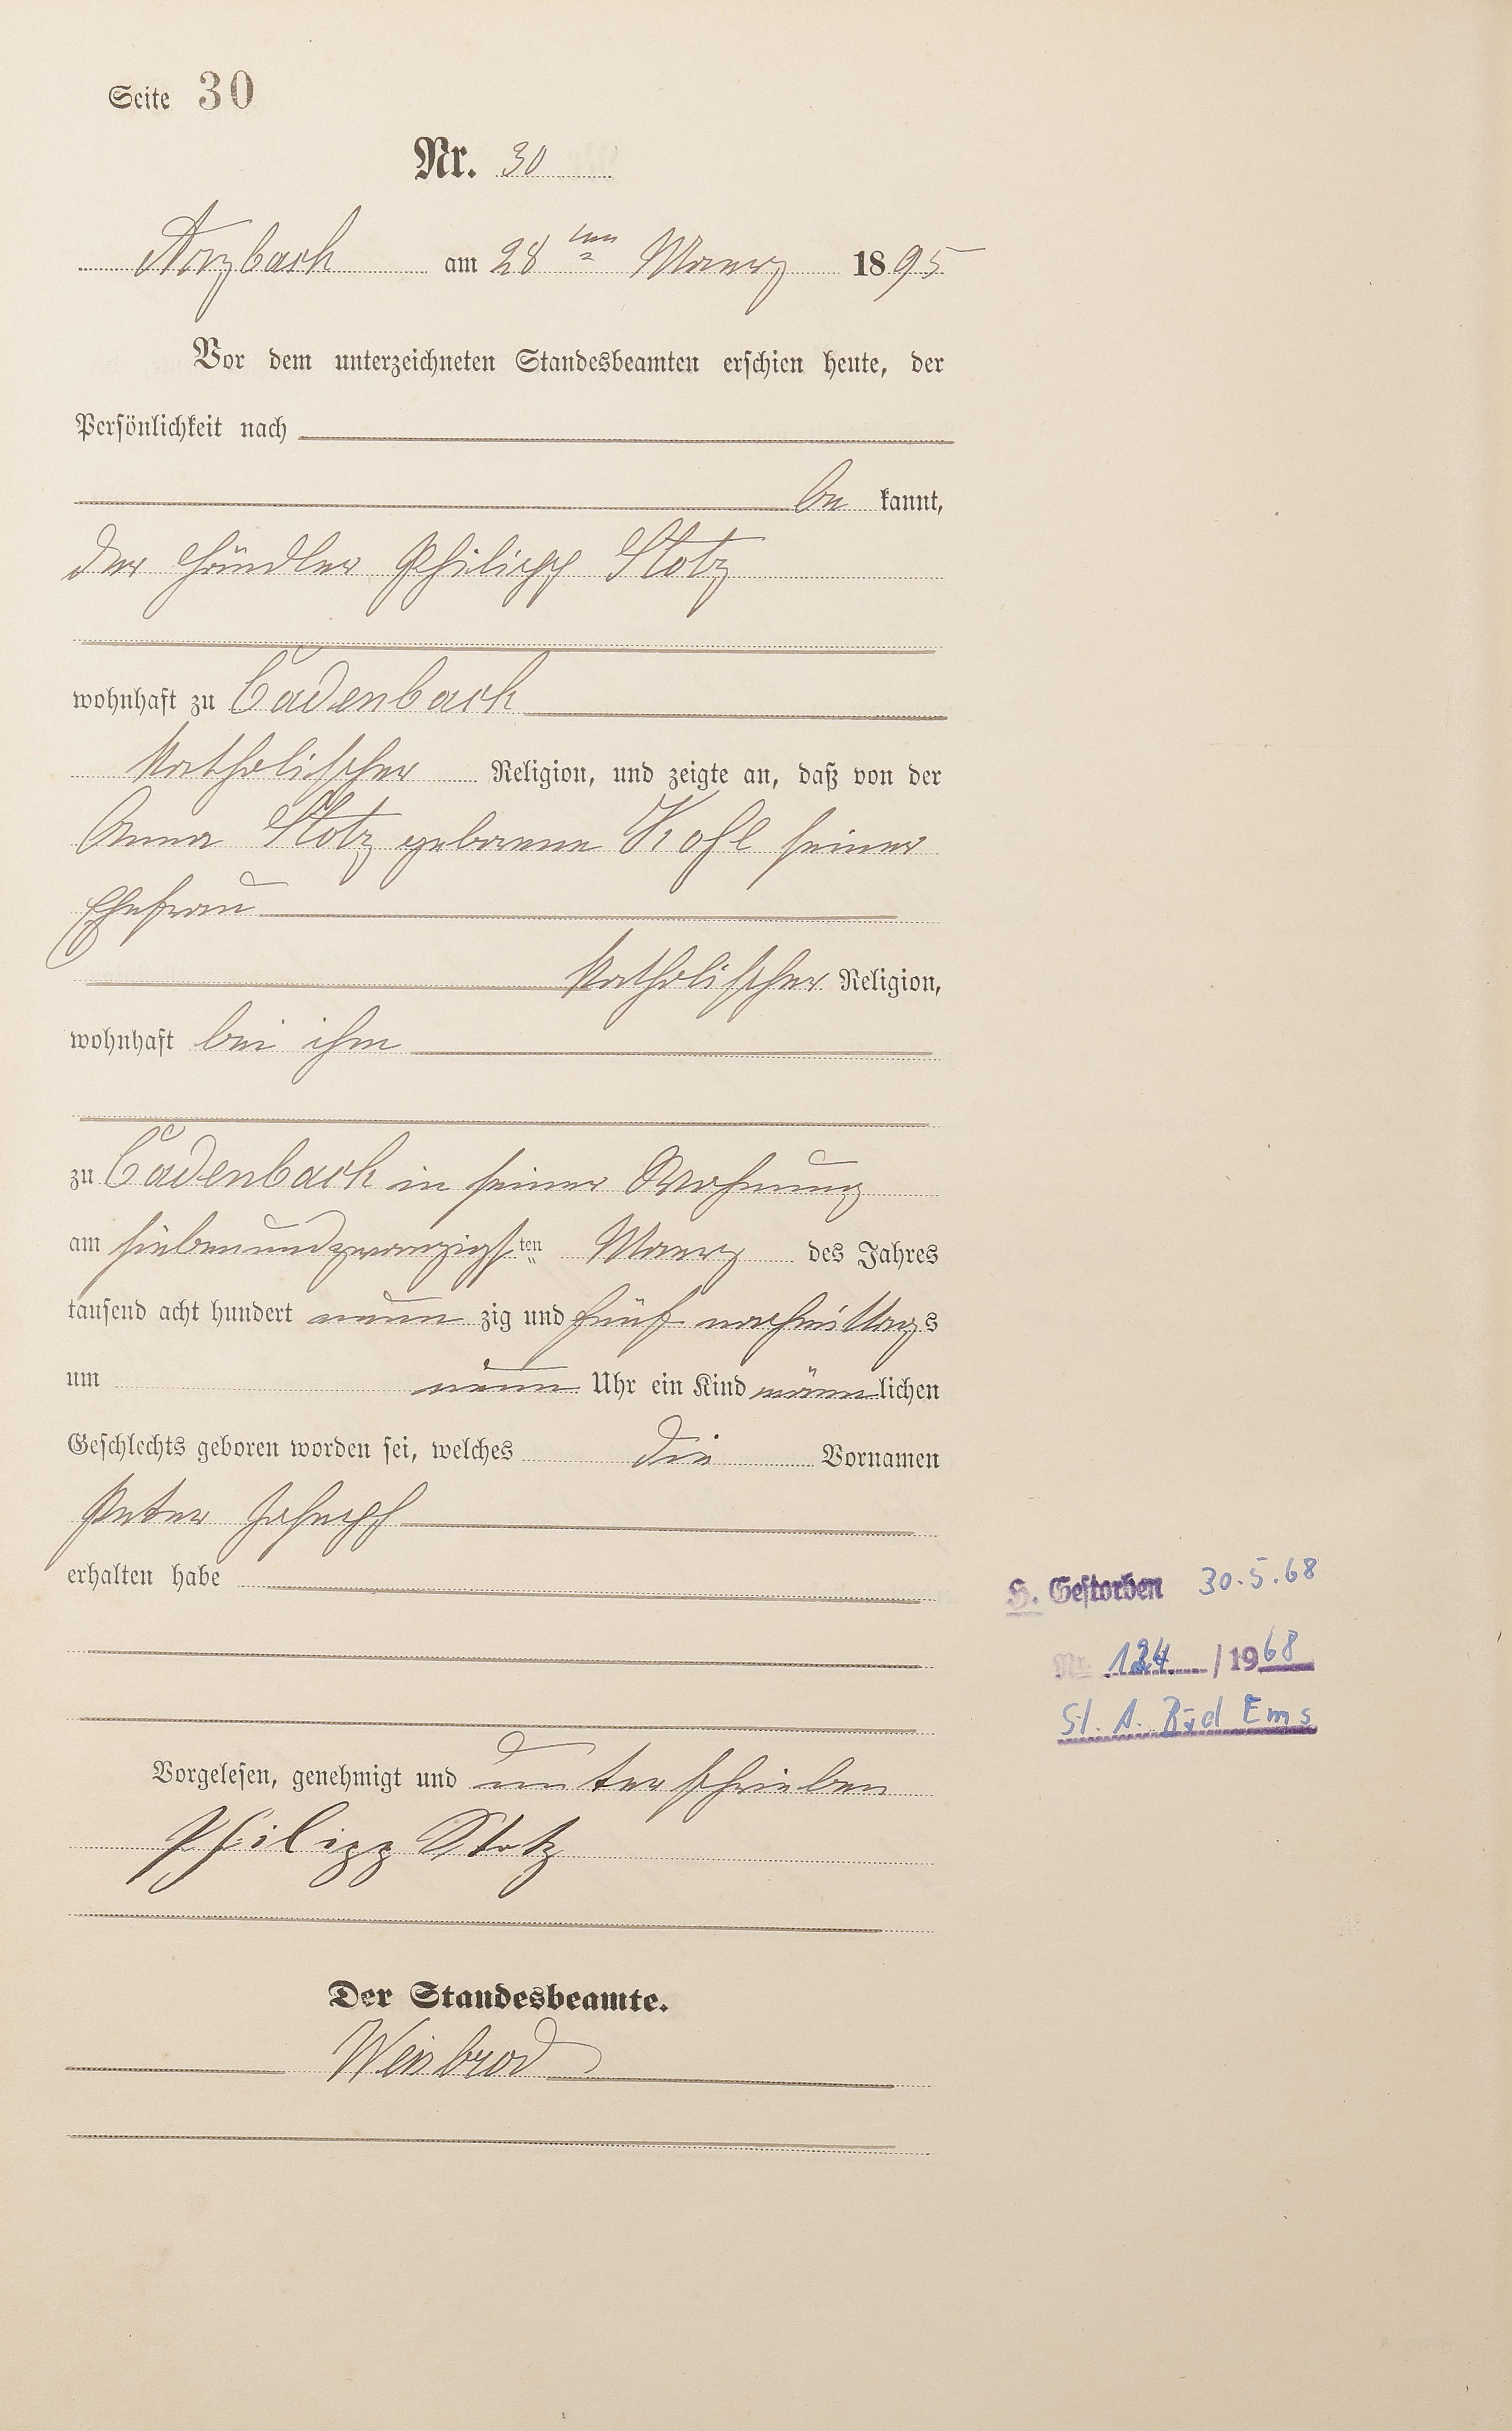 Seite 30
Nr. 30
Arzbach am 28ten Maerz 1895
Vor dem unterzeichneten Standesbeamten erschien heute, der
Persönlichkeit nach
be kannt,
der Händler Philipp Stotz
wohnhaft zu Cadenbach
katholischer Religion, und zeigte an, daß von der
Anna Stotz geborene Kohl seiner
Ehefrau
katholischer Religion,
wohnhaft bei ihm
zu Cadenbach in seiner Wohnung
am siebenundzwanzigsten Maerz des Jahres
tausend acht hundert neun zig und fünf nachmittags
um neun Uhr ein Kind männlichen
Geschlechts geboren worden sei, welches die Vornamen
Peter Joseph
erhalten habe
H. Gestorben 30.5.68
Nr. 124 / 1968
St. A. Bad Ems
Vorgelesen, genehmigt und unterschrieben
Philipp Stotz
Der Standesbeamte.
Weisbrod